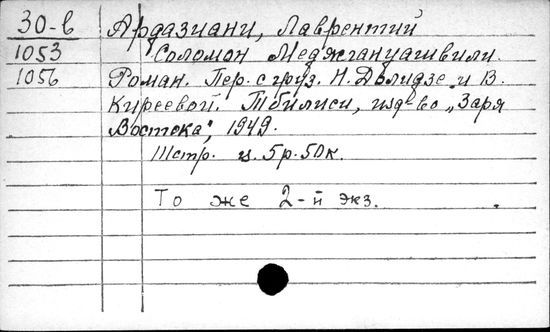 30-в Ардазиани, Лаврентий
1053 Соломон Меджгануашвили.
1056 Роман. Пер. с груз. Н. Двлидзе и В.
Киреевой. Тбилиси, изд-во „Заря
Востока", 1949.
111стр. ц. 5р.50к.
То же 2-й экз.